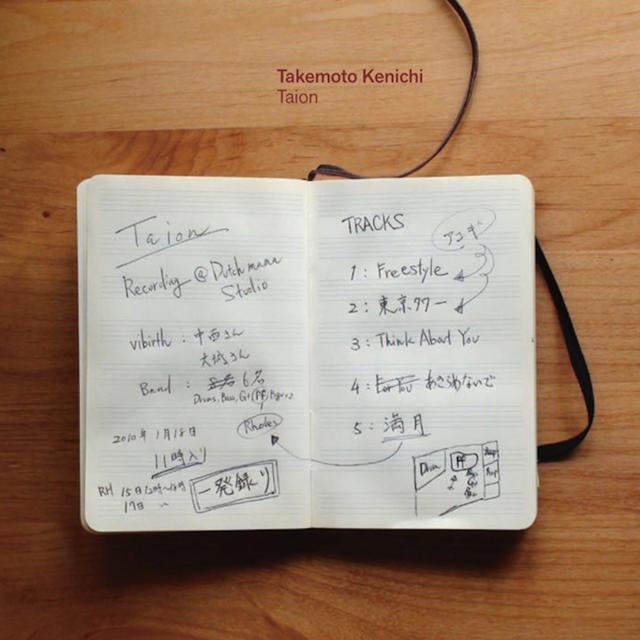 Takemoto Kenichi
Taion
Taion
Recording @ Dutch mama
Studio
vibirth : 中西さん
大城さん
Band : 6名
Drums, Bass, Gt, PF,
Rhodes
2010年 1月18日
11時入り
RH 15日12時〜18時
17日 〃
一発録り
TRACKS
アコギ
1 : Freestyle
2 : 東京タワー
3 : Think About You
4 : For You あきらめないで
5 : 満月
Drum
PF